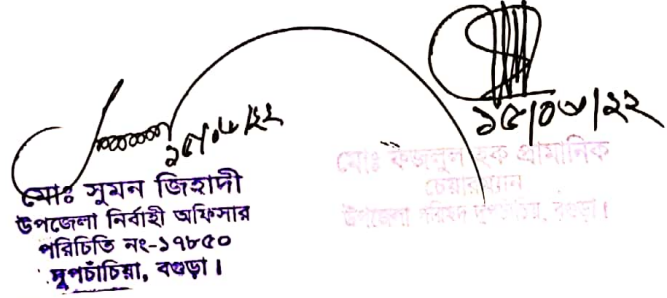 ১৫/০৬/২২
মোঃ সুমন জিহাদী
উপজেলা নির্বাহী অফিসার
পরিচিতি নং-১৭৮৫০
দুপচাঁচিয়া, বগুড়া।
১৫/০৬/২২
মোঃ ফজলুল হক প্রামানিক
চেয়ারম্যান
উপজেলা পরিষদ দুপচাঁচিয়া, বগুড়া।